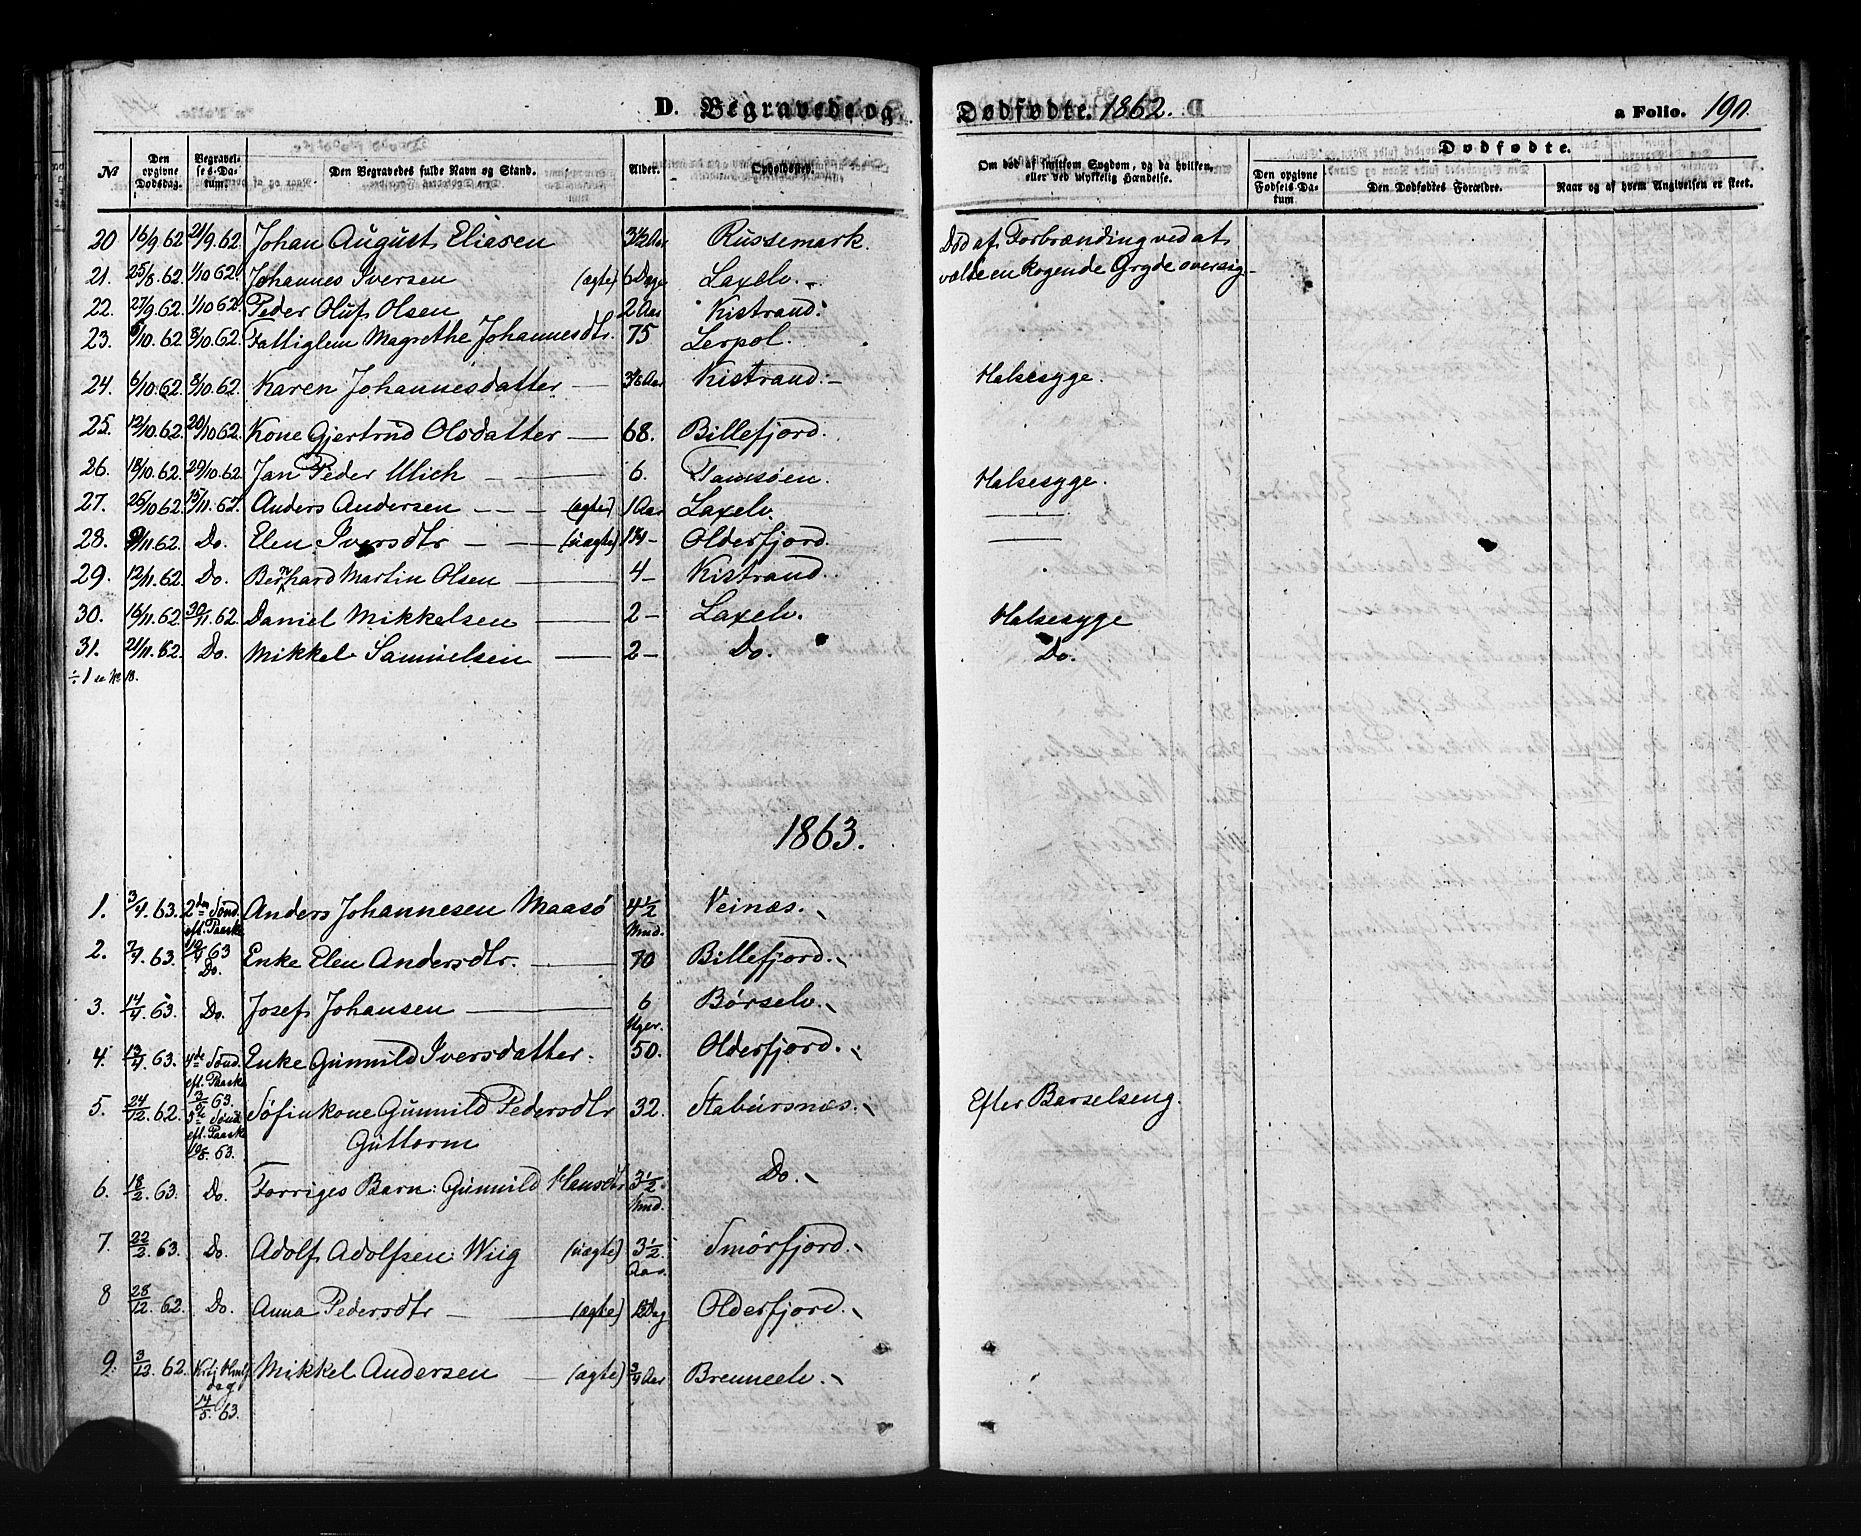 D. Begravede og Dødfødte. 1862. a Folio. 190.
No Den opgivne Dødsdag. Begravelses-Datum. Den Begravedes fulde Navn og Stand. Alder. Opholdssted. Om død af smitsom Sygdom, og da hvilken, eller ved ulykkelig Hændelse. Dødfødte. Den opgivne Fødsels-Datum Den Dødfødtes Forældre. Naar og af hvem Angivelsen er skeet.
20 16/9 62 21/9. 62. Johan August Eliasen 3½ Aar Russemark. Død af Forbrænding ved at
21. 25/8. 62. 1/10 62. Johannes Iversen (ægte) 6 Dage Laxelv. vælte en kogende Gryde over sig
22. 27/9 62. 1/10 62. Peder Oluf Olsen 2 Aar Kistrand.
23. /10. 62 8/10. 62. Fattiglem Magrethe Johannesdtr. 75 Lerpol.
24. 6/10. 62. 8/10. 62. Karen Johannesdatter Aar Kistrand. Halsesyge.
25. 12/10. 62. 20/10 62. Kone Gjertrud Olsdatter 68. Billefjord.
26. 18/10. 62. 29/10. 62. Jan Peder Ulich 6. Tamsøen. Halsesyge.
27. 26/10 62. 15/11. 62. Anders Andersen (ægte) 1 Aar Laxelv.
28. /11 62. Do. Elen Iversdtr (uægte) Olderfjord.
29. 12/11. 62. Do. Bernhard Martin Olsen 4 - Kistrand.
30. 16/11 62. 30/11. 62. Daniel Mikkelsen 2 - Laxelv. Halsesyge
31. 21/11. 62. Do. Mikkel Samuelsen 2 - Do. Do.
÷ 1 No 18.
1863.
1. 3/4 63. 2den Sønd. Anders Johannesen Maasø 4½ Veinæs.
eft. Paaske Mnd.
2. 7/4. 63. 19/4 63 Do. Enke Elen Andersdtr. 70 Billefjord.
3. 14/4 63. Do. Josef Johansen 6 Børselv.
Uger.
4. 13/4 63. 4de Sønd. Enke Gunnild Iversdatter. 50. Olderfjord.
eft. Paaske
3/5 63.
5. 24/12. 62. 5te Sønd Søfinkone Gunnild Pedersdtr 32. Stabursnæs. Efter Barselseng.
eft. Paaske Guttorm
10/5. 63.
6. 18/2. 63. Do. Forriges Barn: Gunnild Hansdtr 3½ Do.
Mnd.
7. 22/2. 63. Do. Adolf Adolfsen Wiig (uægte) 3½ Smørfjord.
Aar.
8 28/12. 62. Do. Anna Pedersdtr (ægte) Dag Olderfjord.
9. 3/12. 62. Krist Himlf. Mikkel Andersen (ægte) ¾ Aar Brenneelv.
dag
14/5. 63.